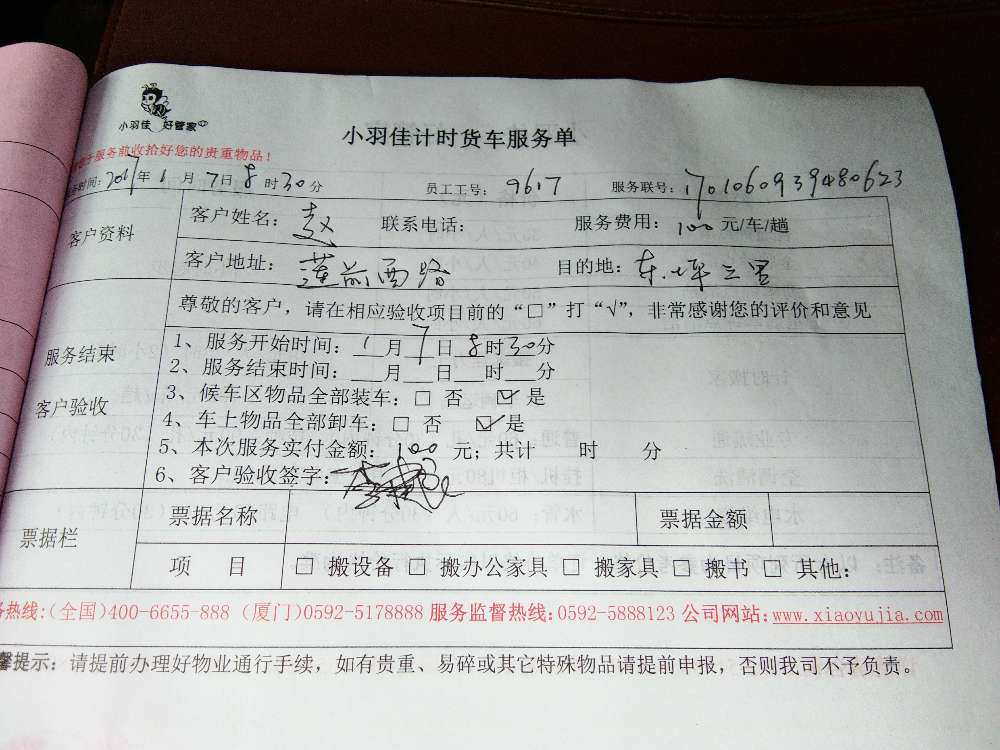 小羽佳 好管家
小羽佳计时货车服务单
服务前收拾好您的贵重物品！
时间：2017年1月7日8时30分 员工工号：9617 服务联号：1701060939480623
客户资料
客户姓名：赵 联系电话： 服务费用：100元/车/趟
客户地址：莲前西路 目的地：东坪三里
服务结束
客户验收
尊敬的客户，请在相应验收项目前的“□”打“√”，非常感谢您的评价和意见
1、服务开始时间：1月7日8时30分
2、服务结束时间：___月___日___时___分
3、候车区物品全部装车：□ 否 ☑ 是
4、车上物品全部卸车：□ 否 ☑是
5、本次服务实付金额：100 元；共计 时 分
6、客户验收签字：
票据栏
票据名称 票据金额
项 目 □ 搬设备 □ 搬办公家具 □ 搬家具 □ 搬书 □ 其他：
热线：(全国)400-6655-888 (厦门)0592-5178888 服务监督热线：0592-5888123 公司网站：www.xiaoyujia.com
馨提示：请提前办理好物业通行手续，如有贵重、易碎或其它特殊物品请提前申报，否则我司不予负责。